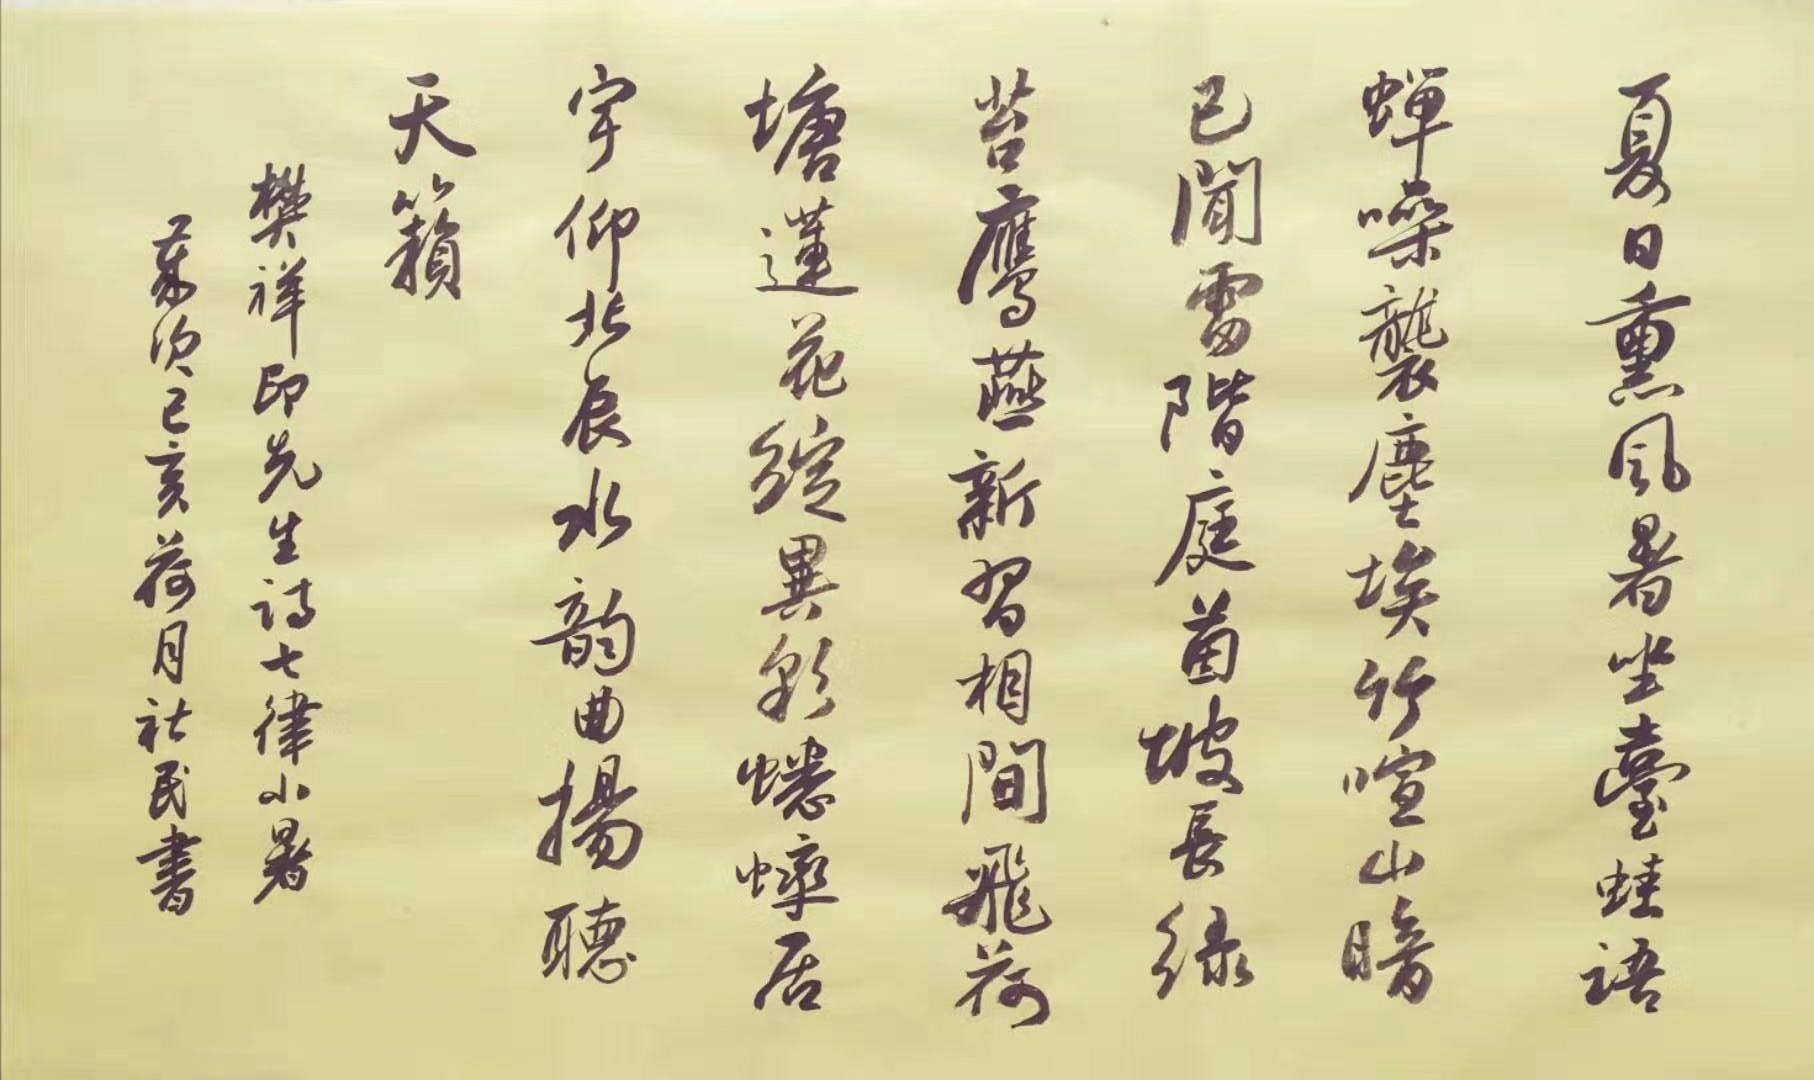 夏日熏風暑坐臺蛙語
蝉噪襲塵埃竹喧山暗
已聞雷階庭菌坡長绿
苔鷹燕新習相間飛荷
塘蓮花綻異彩蟋蟀居
宇仰北辰水韵曲揚聽
天籟
樊祥印先生詩七律小暑
歲次己亥荷月社民書